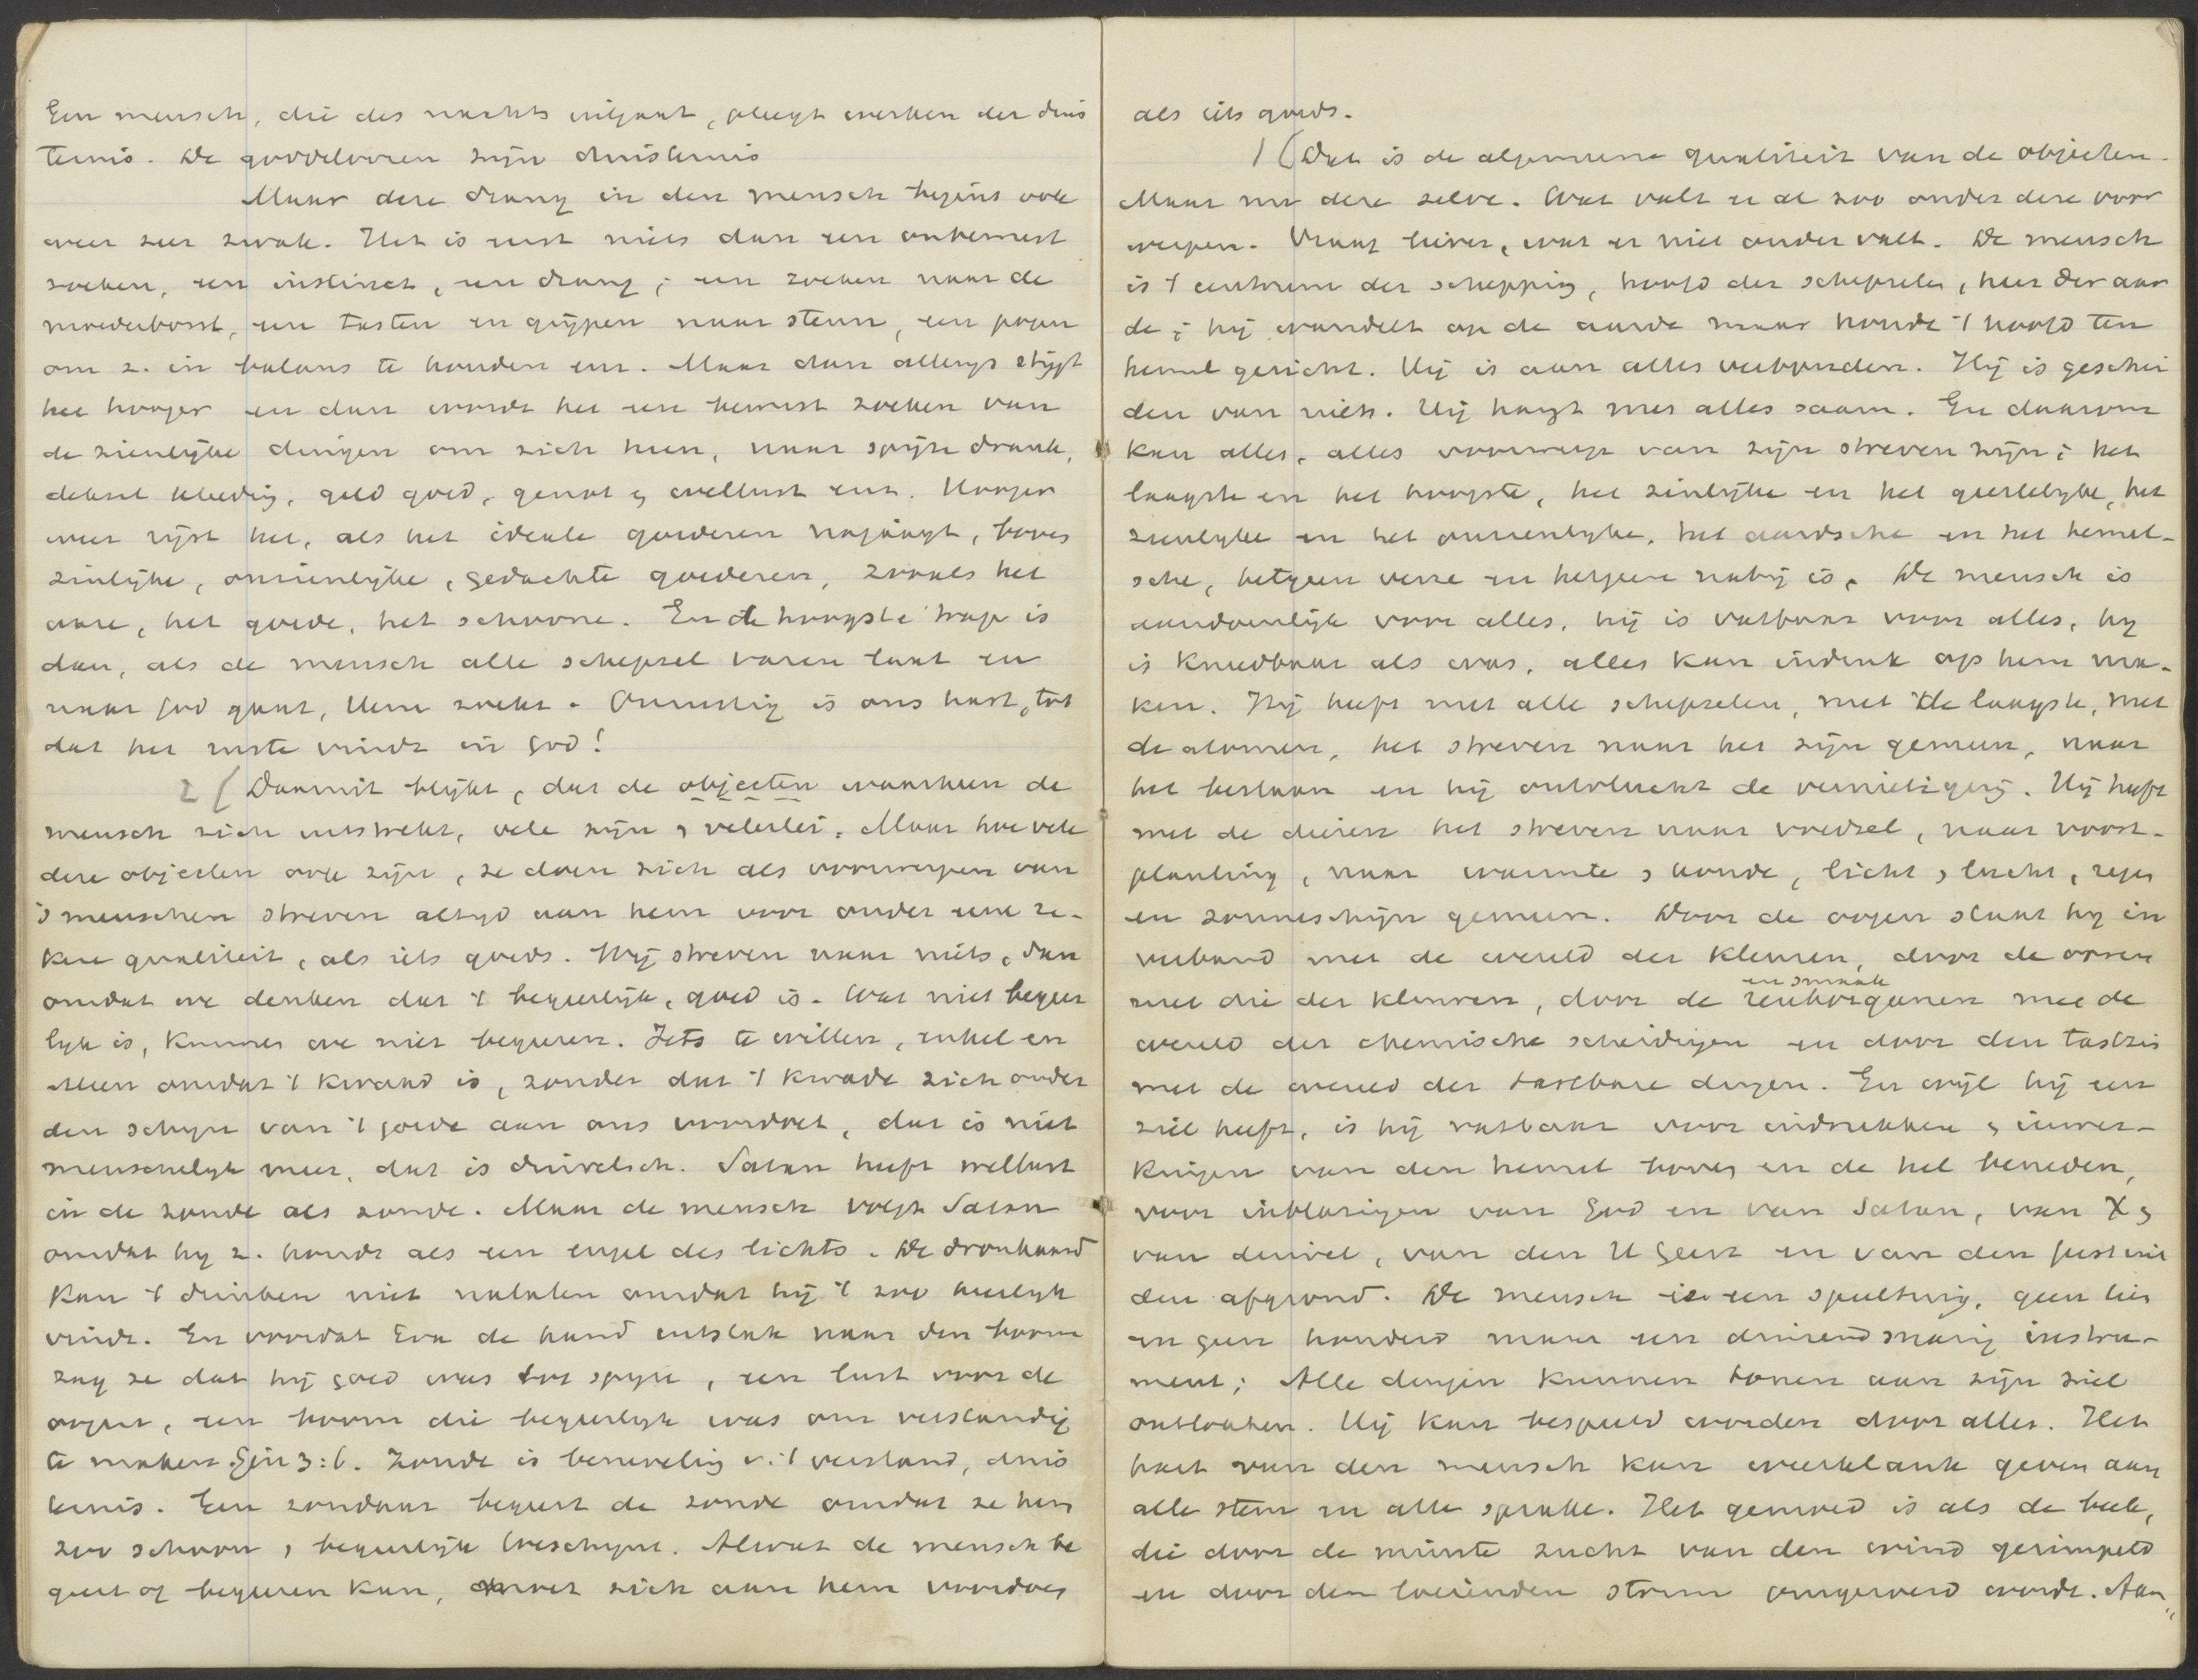 Een mensch, die des nachts uitgaat, pleegt werken der duis
ternis. De goddeloozen zijn duisternis
Maar deze drang in den mensch begint ook
weer zeer zwak. Het is eerst niets dan een onbewust
zoeken, een instinct, een drang; een zoeken naar de
moederborst, een tasten en grijpen naar steun, een pogen
om z. in balans te houden enz. Maar dan allengs stijgt
het hooger en dan wordt het een bewust zoeken van
de zienlijke dingen om zich heen, naar spijze drank,
deksel kleeding, geld goed, genot en wellust enz. Hooger
weer rijst het, als het ideale goederen najaagt, boven
zinlijke, onzienlijke, gedachte goederen, zooals het
ware, het goede, het schoone. En de hoogste trap is
dan, als de mensch alle schepsel varen laat en
naar God gaat, Hem zoekt. Onrustig is ons hart, tot
dat het ruste vindt in God!
2( Daaruit blijkt, dat de objecten waarheen de
mensch zich uitstrekt, vele zijn en velerlei. Maar hoevele
deze objecten ook zijn, ze doen zich als voorwerpen van
's menschen streven altijd aan hem voor onder eene ze-
kere qualiteit, als iets goeds. Wij streven naar niets, dan
omdat we denken dat 't begeerlijk, goed is. Wat niet begeer
lijk is, kunnen we niet begeeren. Iets te willen, enkel en
alleen omdat 't kwaad is, zonder dat 't kwade zich onder
den schijn van 't goede aan ons voordoet, dat is niet
menschelijk meer, dat is duivelsch. Satan heeft wellust
in de zonde als zonde. Maar de mensch volgt Satan
omdat hij z. houdt als een engel des lichts. De dronkaard
kan 't drinken niet nalaten omdat hij 't zoo heerlijk
vindt. En voordat Eva de hand uitstak naar den boom
zag ze dat hij goed was tot spijze, een lust voor de
oogen, een boom die begeerlijk was om verstandig
te maken. Gen 3:6. Zonde is beneveling v. 't verstand, duis
ternis. Een zondaar begeert de zonde omdat ze hem
zoo schoon en begeerlijk toeschijnt. Alwat de mensch be
geert of begeeren kan, moet zich aan hem voordoen
als iets goeds.
1( Dat is de algemeene qualiteit van de objecten.
Maar nu deze zelve. Wat valt er al zoo onder deze voor
werpen. Vraag liever, wat er niet onder valt. De mensch
is 't centrum der schepping, hoofd der schepselen, heer der aar
de; hij wandelt op de aarde maar houdt 't hoofd ten
hemel gericht. Hij is aan alles verbonden. Hij is geschei
den van niets. Hij hangt met alles saam. En daarom
kan alles, alles voorwerp van zijn streven zijn; het
laagste en het hoogste, het zinlijke en het geestelijke, het
zienlijke en het onzienlijke, het aardsche en het hemel-
sche, hetgeen verre en hetgeen nabij is. De mensch is
aandoenlijk voor alles, hij is vatbaar voor alles, hij
is kneedbaar als was, alles kan indruk op hem ma-
ken. Hij heeft met alle schepselen, met de laagste, met
de atomen, het streven naar het zijn gemeen, naar
het bestaan en hij ontvlucht de vernietiging. Hij heeft
met de dieren het streven naar voedsel, naar voort-
planting, naar warmte en koude, licht en lucht, regen
en zonneschijn gemeen. Door de oogen staat hij in
verband met de wereld der kleuren, door de ooren
met die der kleuren, door de reukorganen en smaak mee de
wereld der chemische scheidingen en door den tastzin
met de wereld der tastbare dingen. En wijl hij een
ziel heeft, is hij vatbaar voor indrukken en inwer-
kingen van den hemel boven en de hel beneden,
voor inblazingen van God en van Satan, van X en
van duivel, van den H Geest en van den geest uit
den afgrond. De mensch is een speeltuig, geen lier
en geen honderd maar een duizendsnarig instru-
ment; Alle dingen kunnen tonen aan zijn ziel
ontlokken. Hij kan bespeeld worden door alles. Het
hart van den mensch kan weerklank geven aan
alle stem en alle sprake. Het gemoed is als de beek,
die door de minste zucht van den wind gerimpeld
en door den loeienden storm omgeroerd wordt. Aan